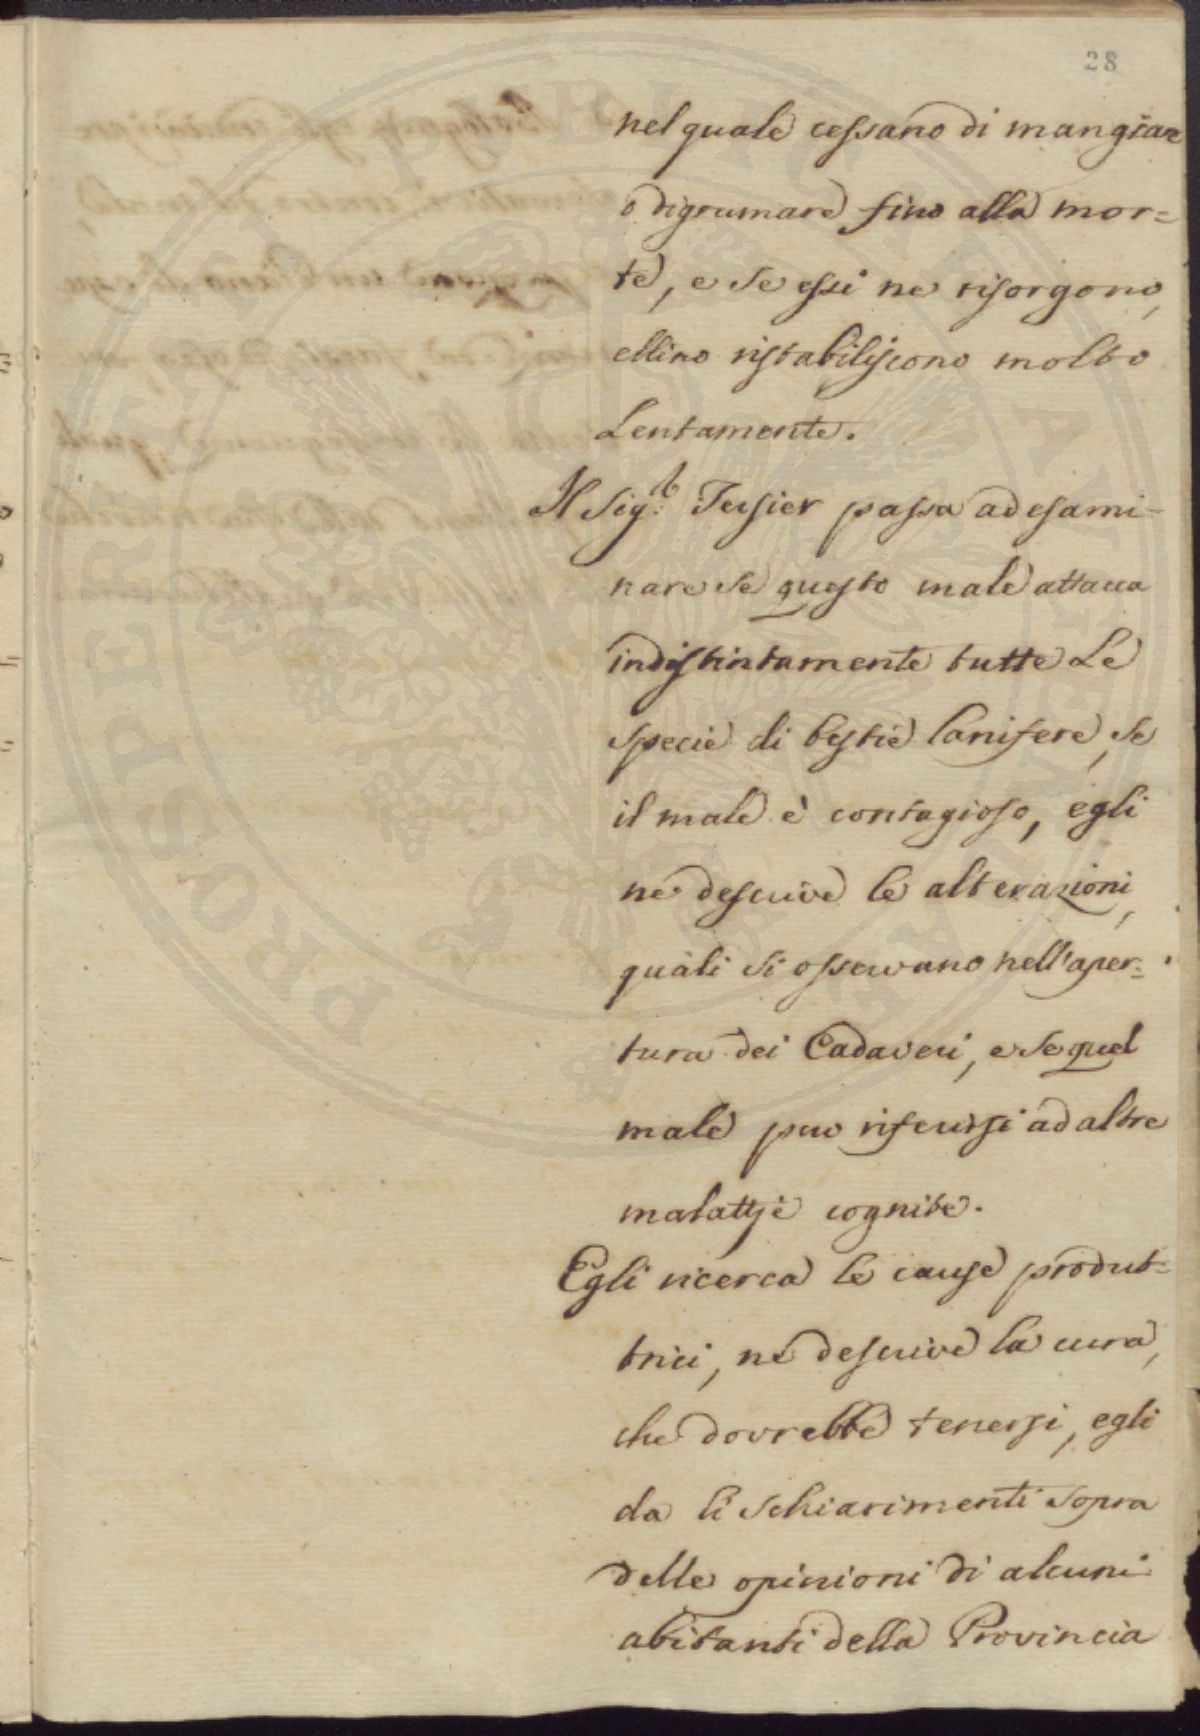 28
nel quale cessano di mangiare
o digrumare fino alla mor=
te, e se essi ne risorgono,
ellino ristabiliscono molto
Lentamente.
Il Sig.r Tessier passa ad esami-
nare se questo male attacca
indistintamente tutte Le
specie di bestie lanifere, se
il male è contagioso, egli
ne descrive le alterazioni,
quali si osservano nell'aper=
tura dei Cadaveri, e se quel
male puo riferirsi ad altre
malattje cognite.
Egli ricerca le cause produt=
trici, ne descrive la cura,
che dovrebbe tenersi, egli
da li schiarimenti sopra
delle opinioni di alcuni
abitanti della Provincia